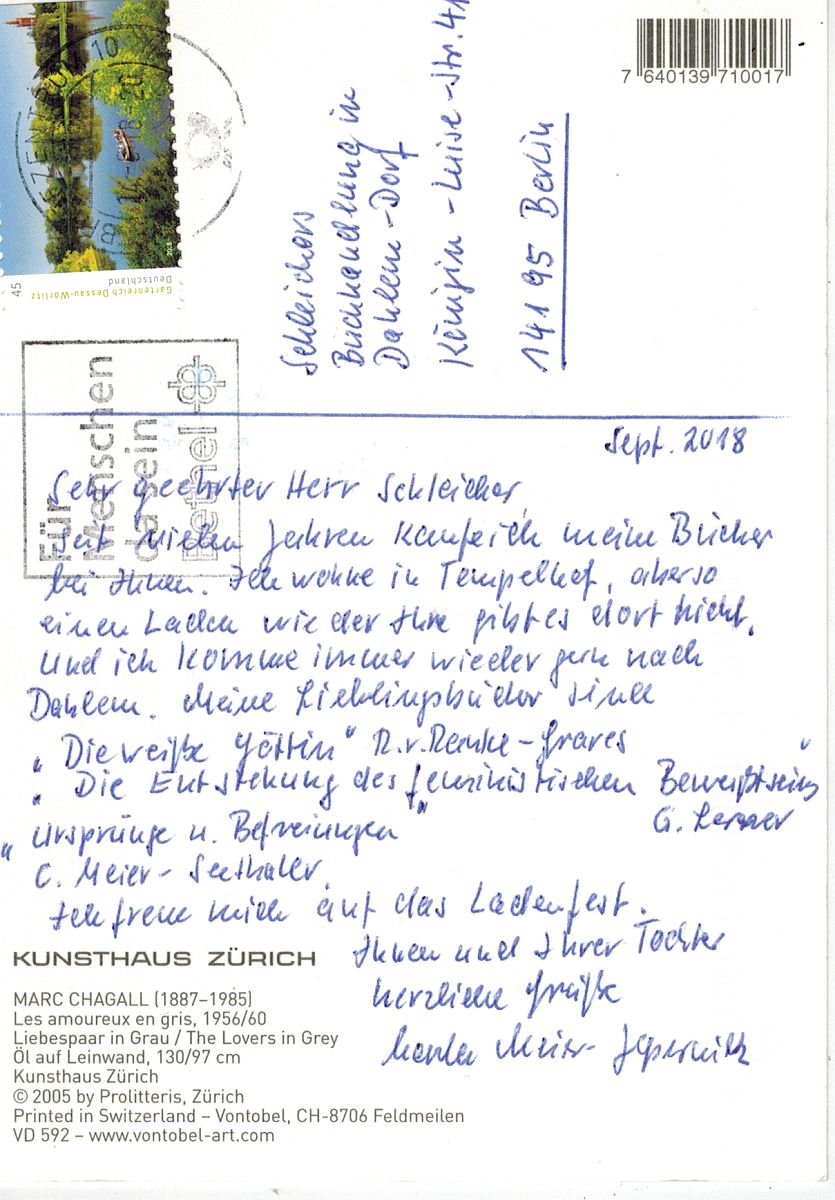 7 640139 710017
45
Gartenreich Dessau-Wörlitz
Deutschland
BRIEFZENTRUM
Für
Menschen
da sein
Bethel
Schleichers
Buchhandlung in
Dahlem-Dorf
Königin-Luise-Str. 41
14195 Berlin
Sept. 2018
Sehr geehrter Herr Schleicher,
seit vielen Jahren kaufe ich meine Bücher
bei Ihnen. Ich wohne in Tempelhof, aber so
einen Laden wie der Ihre gibt es dort nicht.
Und ich komme immer wieder gern nach
Dahlem. Meine Lieblingsbücher sind
„Die weiße Göttin" R. v. Ranke-Graves
„Die Entstehung des feministischen Bewußtseins"
G. Lerner
„Ursprünge u. Befreiungen"
C. Meier-Seethaler.
Ich freue mich auf das Ladenfest.
Ihnen und Ihrer Tochter
herzliche Grüße
Meier-
KUNSTHAUS ZÜRICH
MARC CHAGALL (1887–1985)
Les amoureux en gris, 1956/60
Liebespaar in Grau / The Lovers in Grey
Öl auf Leinwand, 130/97 cm
Kunsthaus Zürich
© 2005 by Prolitteris, Zürich
Printed in Switzerland – Vontobel, CH-8706 Feldmeilen
VD 592 – www.vontobel-art.com